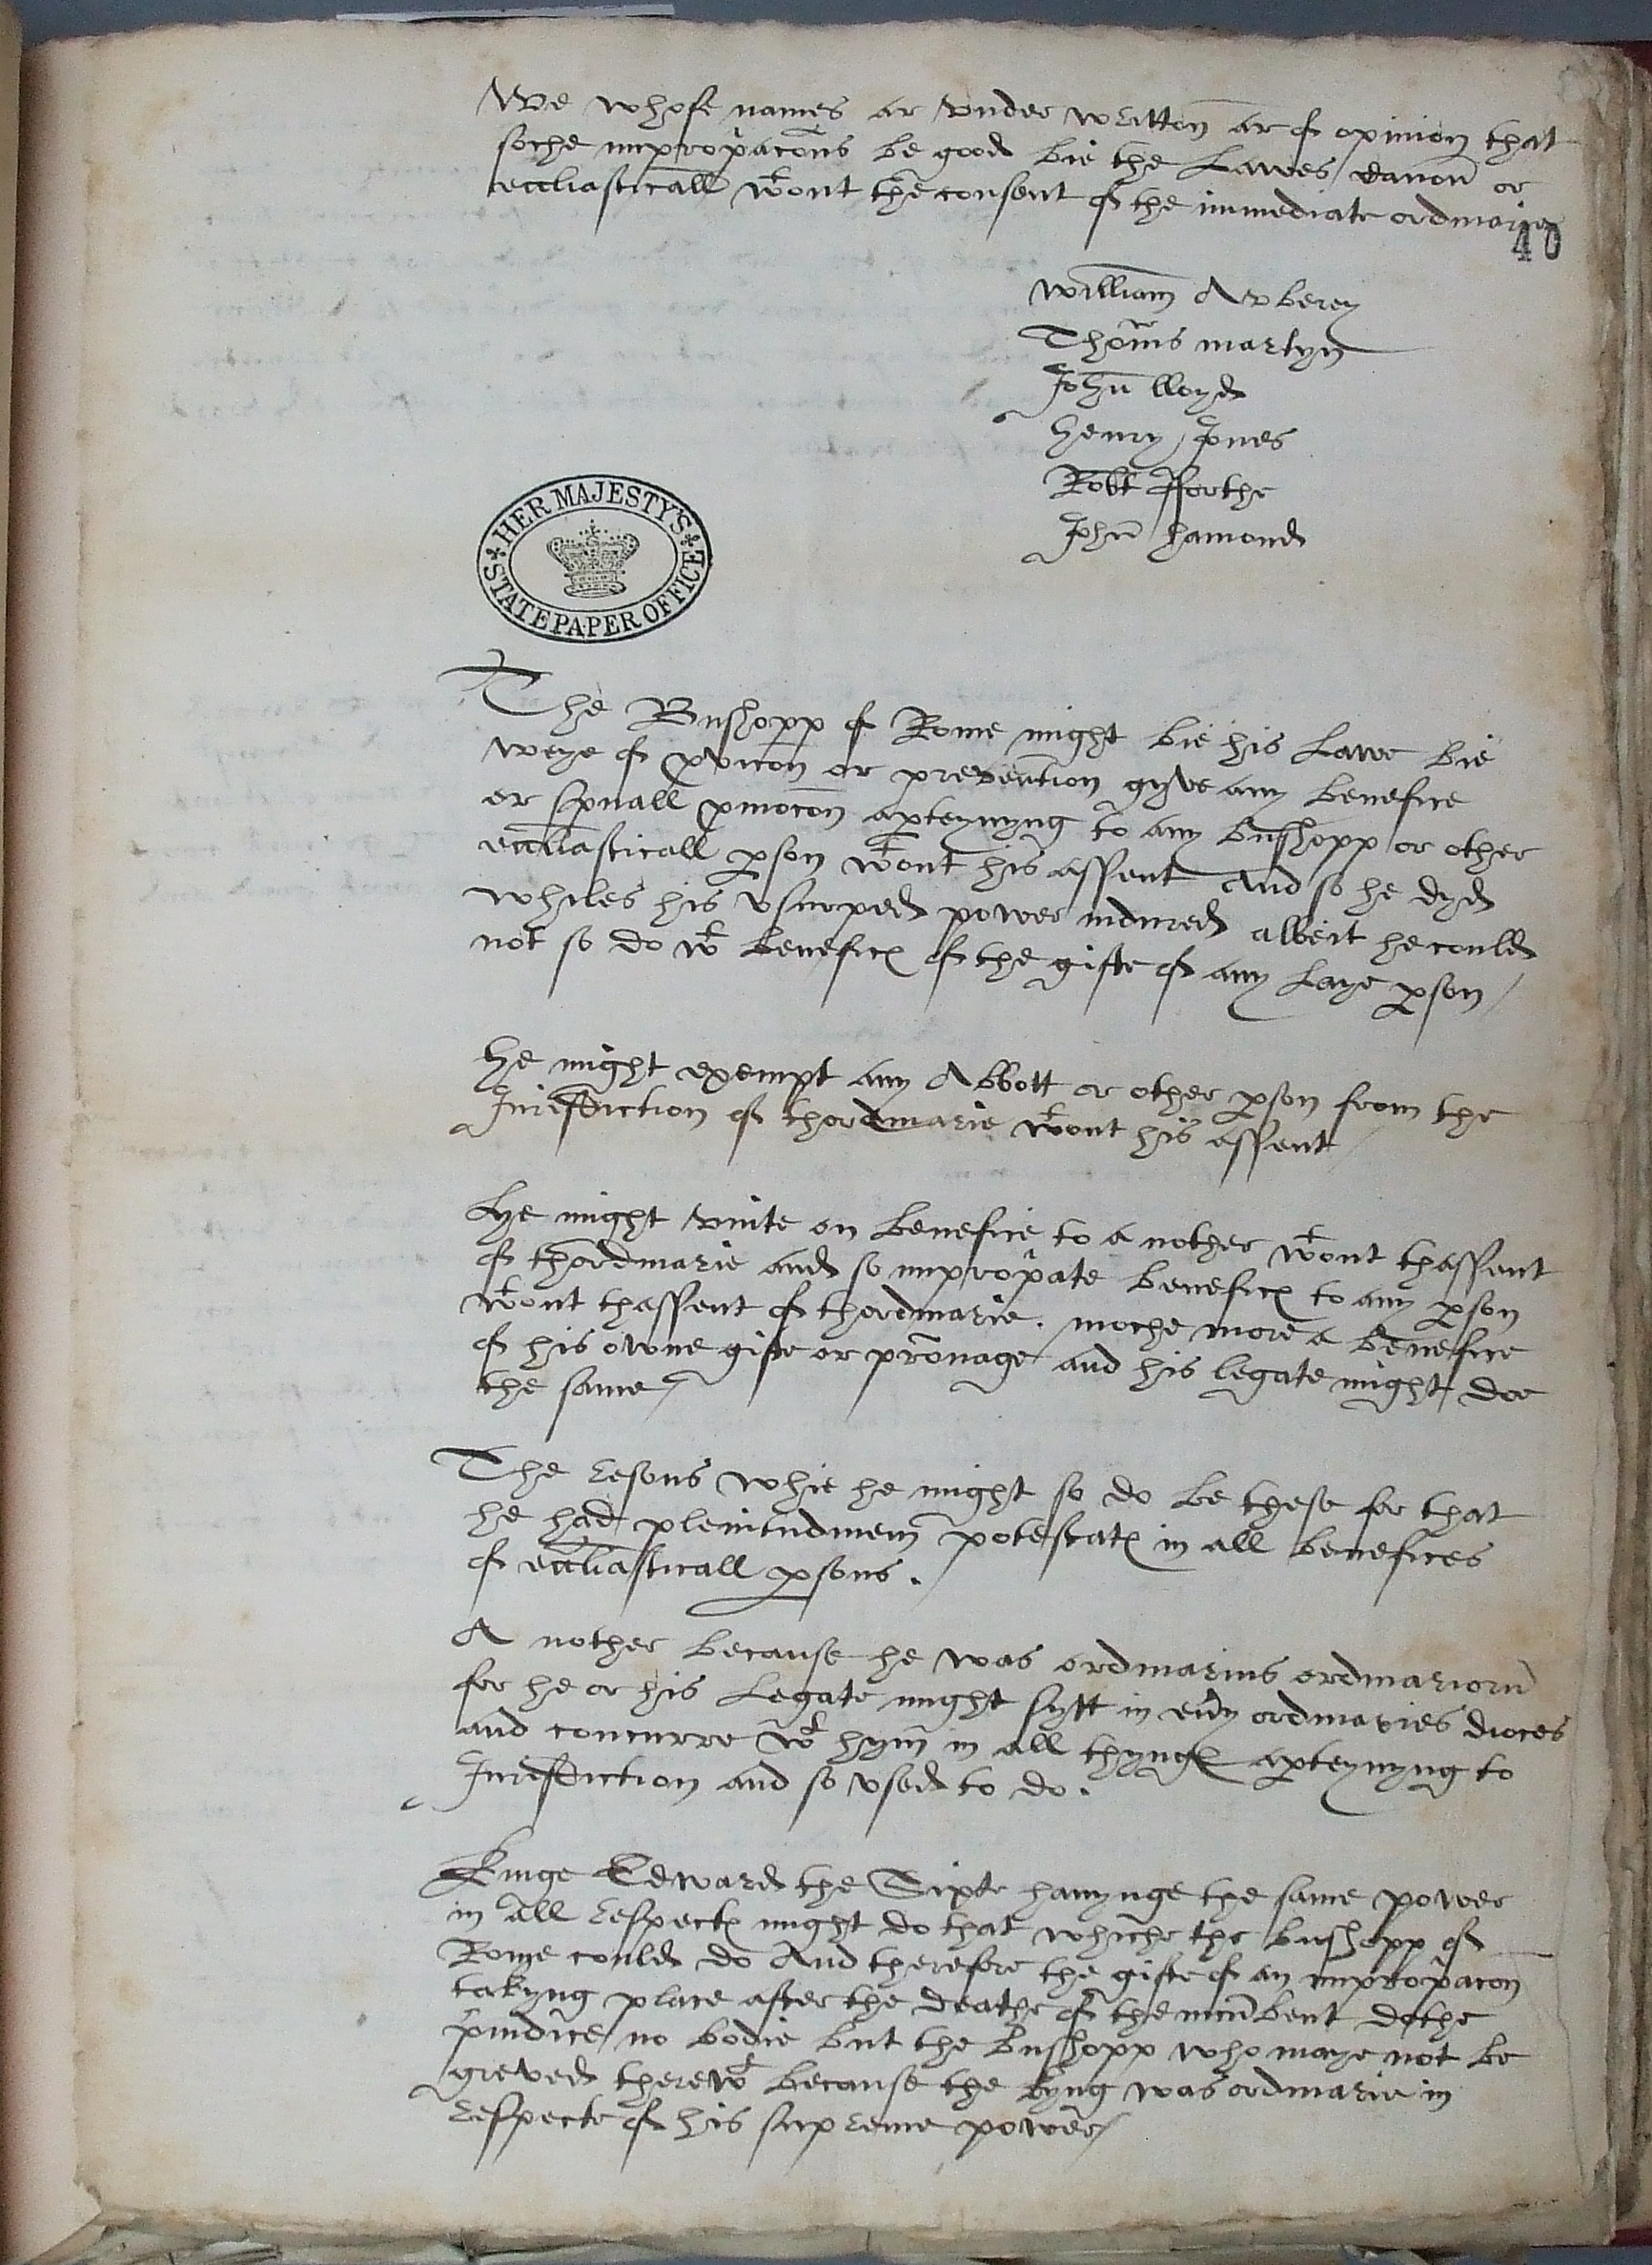 We whose names ar vnder written ar of opinion that
soche impropꝛacōns be good bie the Lawes canon or
eccliasticall wtout the consent of the immediate ordinaries
40
William Avberey
Thom̄s martyn
John̄ lloyd
henry Jones
Robt fforthe
John̄ hamond
HER MAJESTY'S
STATE PAPER OFFICE
The Busshopp of Rome might bie his Lawe bie
weye of ꝓvicōn or prevenc̄tion gyve any benefice
or sp̄uall ꝓmocōn apꝑteynyng to any busshopp or other
eccliasticall ꝑson wtout his assent And so he dyd
whiles his vsurped power indured albeit he could
not so do wt beneficꝭ of the gifte of any Laye ꝑson
he might exempt any Abbott or other ꝑson from the
Jurisdiction of thordinarie wtout his assent
hye might vnite on benefice to a nother wtout thassent
of thordinarie and so impropꝛate beneficꝭ to any ꝑson
wtout thassent of thordinarie. moche more a benefice
of his owne gifte or pr̄onage and his legate might doe
the same
The resons whie he might so do be these for that
he had plenitudinem potestatꝭ in all benefices
of eccliasticall ꝑsons.
A nother because he was ordinarius ordinarioru̅
for he or his Legate might sytt in eu̅y ordinaries dioces
and concurre wt hym̄ in all thyngꝭ apꝑteynyng to
Jurisdiction and so vsed to do.
Kinge Edward the Sixte hauynge the same power
in all respectꝭ might do that whiche the busshopp of
Rome could do And therefore the gifte of an impropꝛacōn
takyng place after the deathe of the incu̅bent dothe
p̄iudice no bodie but the Busshopp who maye not be
greved therewt because the kyng was ordinarie in
respecte of his supreme power